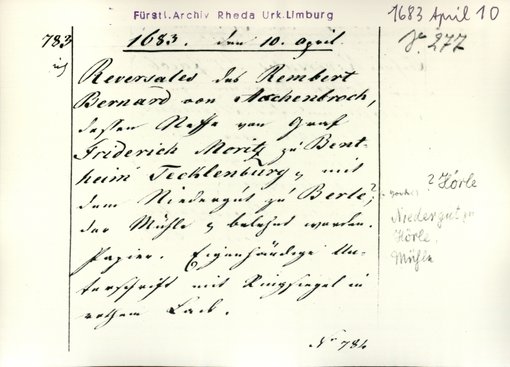 Fürstl. Archiv Rheda Urk. Limburg
1683 April 10
No. 277
783
1683. den 10. April.
Reversales des Rembert
Bernard von Aschenbroch,
dessen Neffe von Graf
Friderich Moritz zu Bent-
heim Tecklenburg mit
dem Niedergut zu Berle?
der Mühle belehnt worden.
Papier. Eigenhändige Un-
terschrift mit Ringsiegel in
rothem Lack.
? Hörle
Niedergut zu
Hörle,
Mühle
No 784